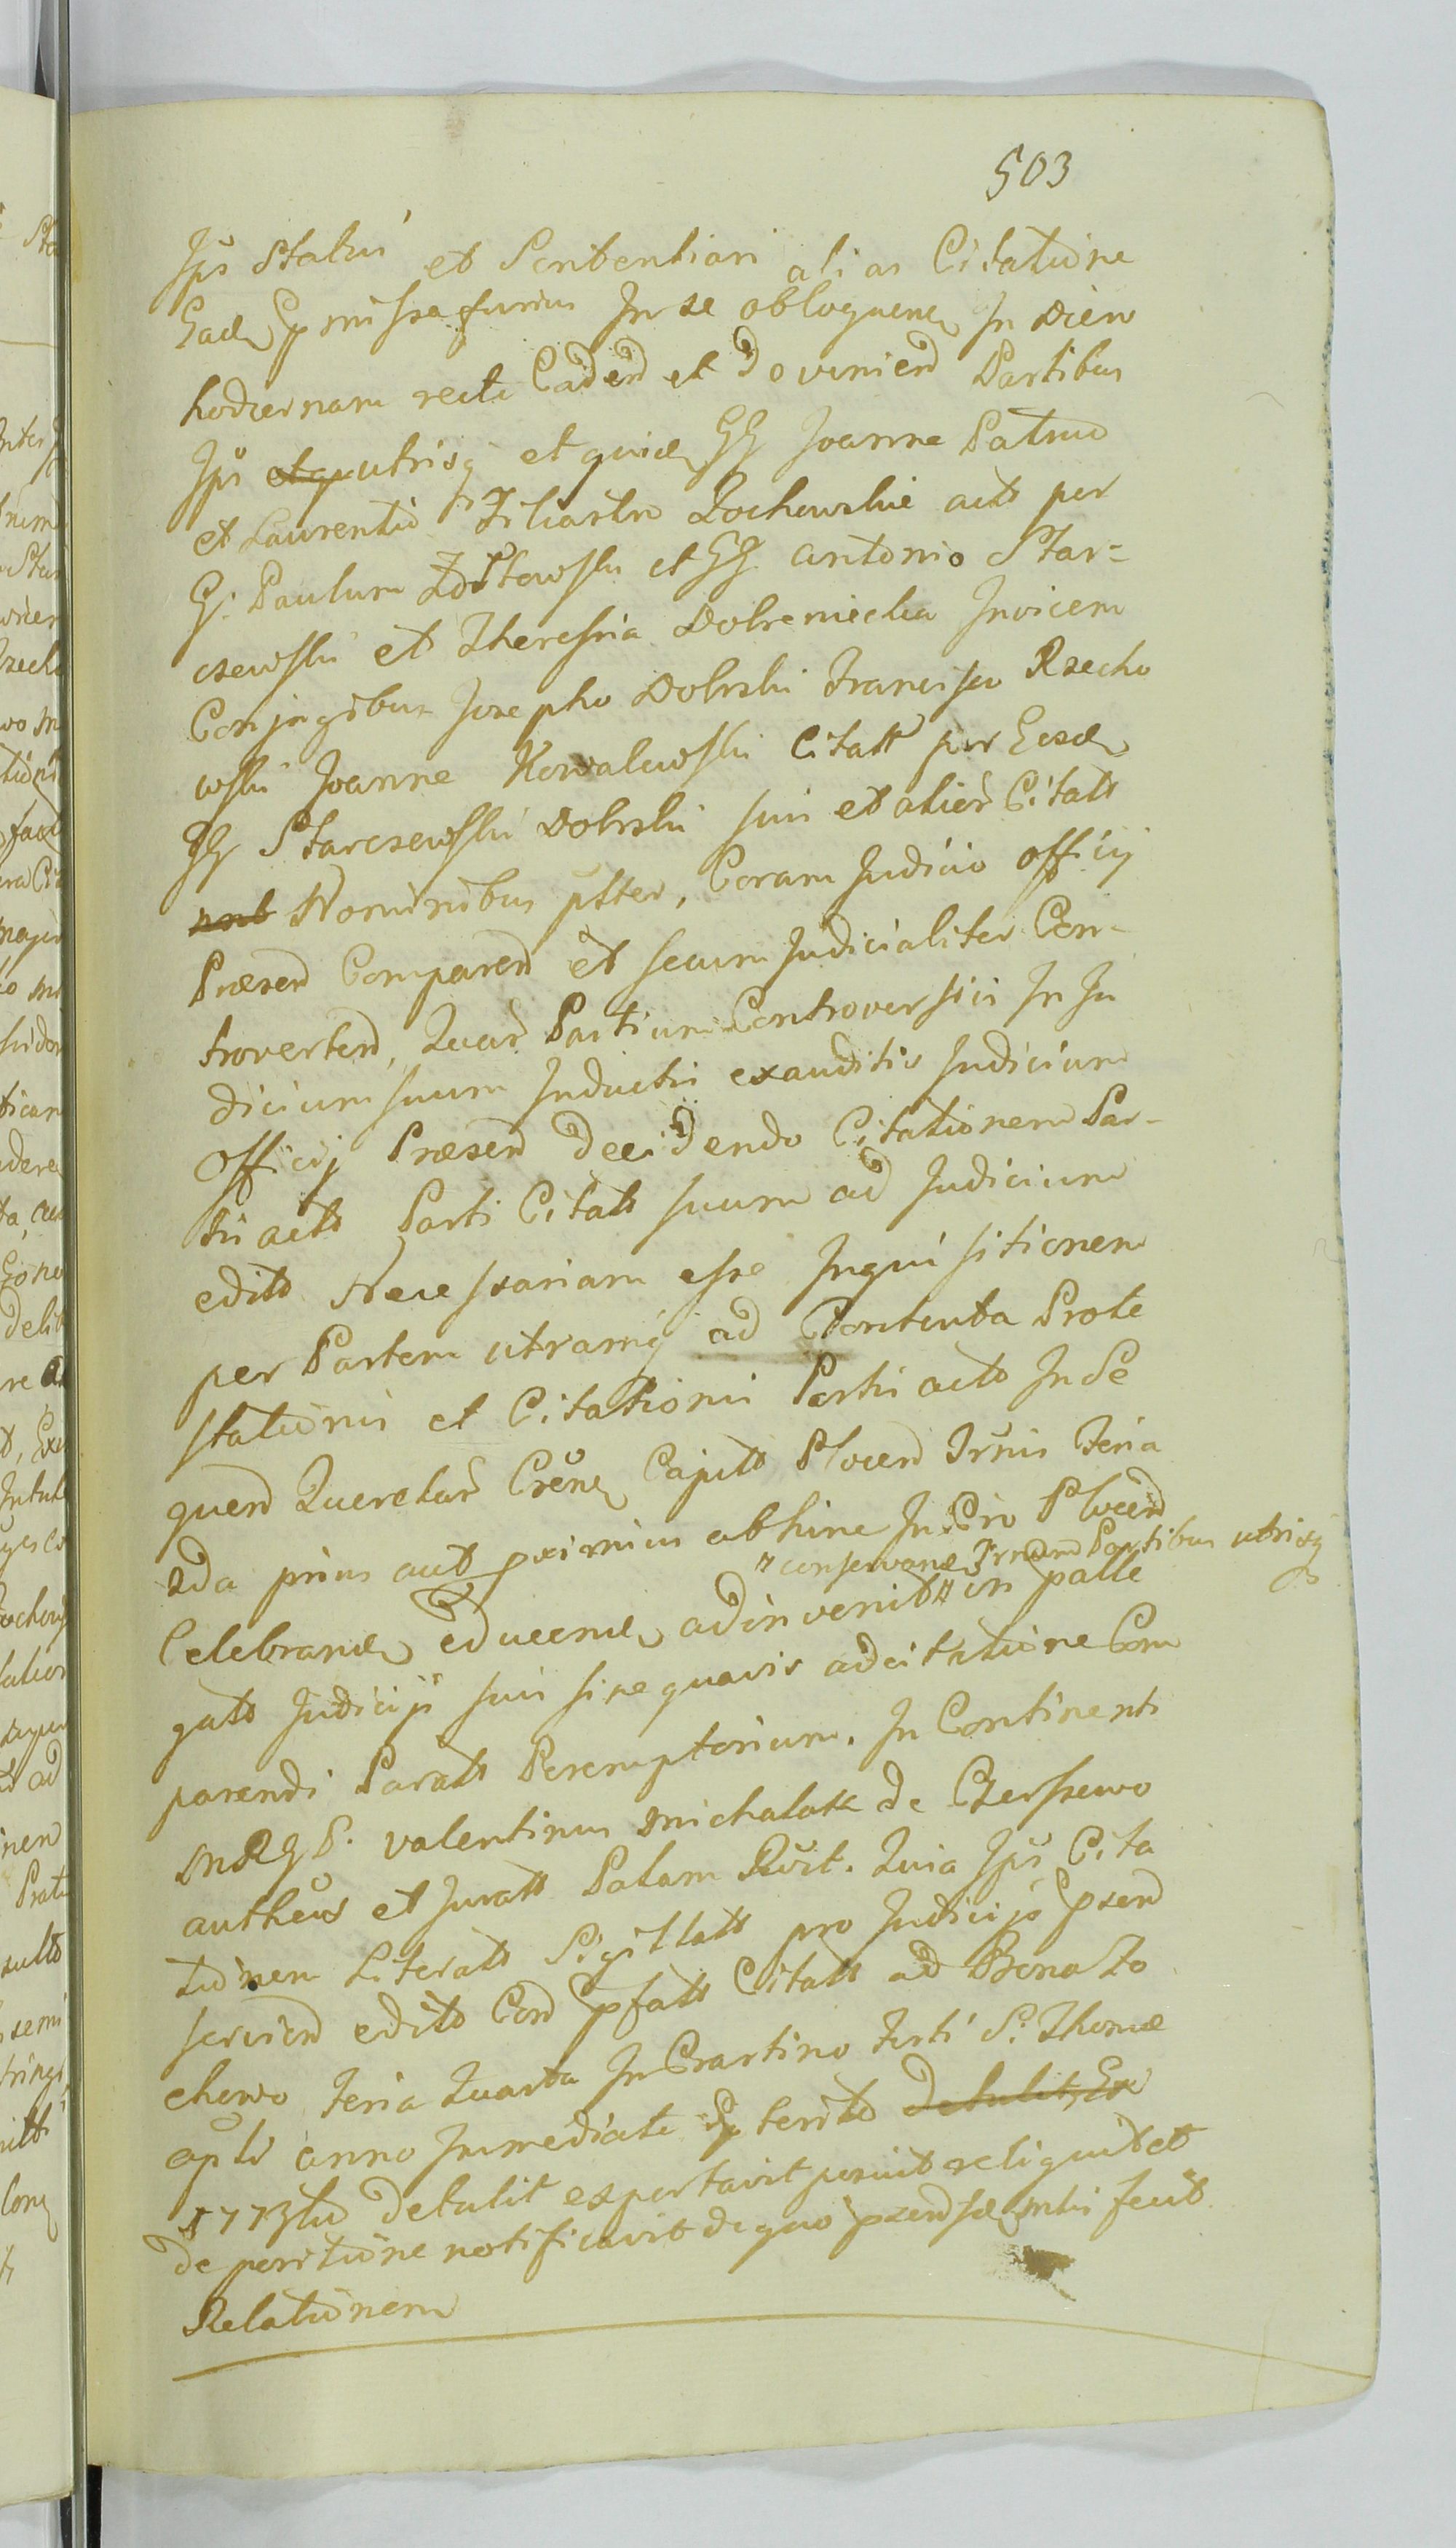 503
Jps Statui et Sententiari alias Citatione
Ead pmissa furius In se obloquen In diem
hodiernam recte Caden et Dovenien Partibus
Jps utrisq et quid GG Joanne Patruo
et Laurentio Filiastro Zochowskie acto per
G. Paulum Żółtowski et GG Antonio Star=
czewski et Theresia Dobreniecka Invicem
Conjugibus Josepho Dobrski Francisco Rzecho
wski Joanne Kowalewski Citatt per Eosd
GG Starczewski Dobrski sui et alior Citatt
Nominibus pstter, Coram Judicio Officij
Præsen Comparen et secum Judicialiter Con-
troverten, Quar Partium Controversiis In Ju
dicium suum Inductis exauditis Judicium
Officij Præsen Decidendo Citationem Par-
tis acto Parti Citatt suum ad Judicium
edito Necessariam esse Inquisitionem
per Partem utramq ad Contenta Prote
stationis et Citationis Partis acto In Se
quen Querelar Crêne Capitt Plocen Trûis Feria
2da prius aut proximius abhinc In Cro Plocen
"conservan Trmum Partibus utrisq
Celebran educen adinvenit" in palle
gatt Judicij sui sine quavis adcitatione Com
parendi Paratt Peremptorium. In Continenti
MRGP. Valentinus Michalak de Czerszewo
authens et Juratt Palam Rvit. Quia Jps Cita
tionem Literatt Sigillatt pro Judicijs psen
servien edito Con pfatt Citatt ad Bona Zo
chowo Feria Quarta In Crastino Festi S. Thomæ
apli anno Immediate pterito
1773tio Detulit exportavit posuit reliquit et
de positione notificavit de quo psen sæ mhi fecit
Relationem